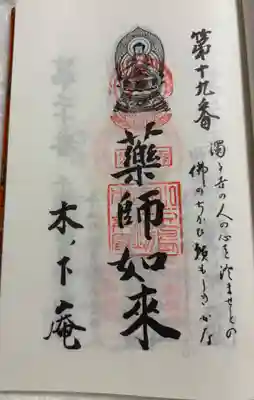 第十九番
濁る世の人の心を澄ませとの
佛のちかひ頼もしきかな
藥師如來
木ノ下庵